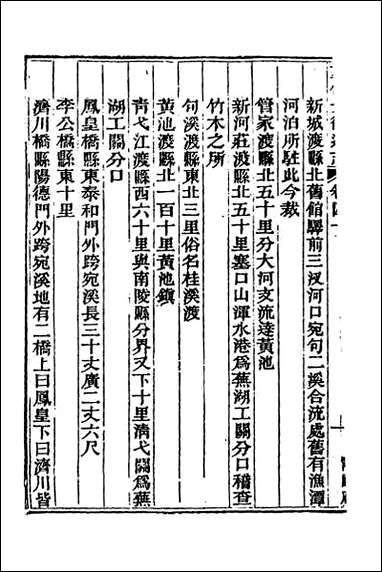 新城渡縣北舊館驛前三汊河口宛句二溪合流處舊有漁潭
河泊所駐此今裁
管家渡縣北五十里分大河支流達黃池
新河莊渡縣北五十里塞口山渾水港爲蕪湖工關分口稽查
竹木之所
句溪渡縣東北三里俗名桂溪渡
黃池渡縣北一百十里黃池鎮
青弋江渡縣西六十里與南陵縣分界又下十里淸弋關爲蕪
湖工關分口
鳳皇橋縣東泰和門外跨宛溪長三十丈廣二丈六尺
李公橋縣東十里
濟川橋縣陽德門外跨宛溪地有二橋上曰鳳皇下曰濟川皆